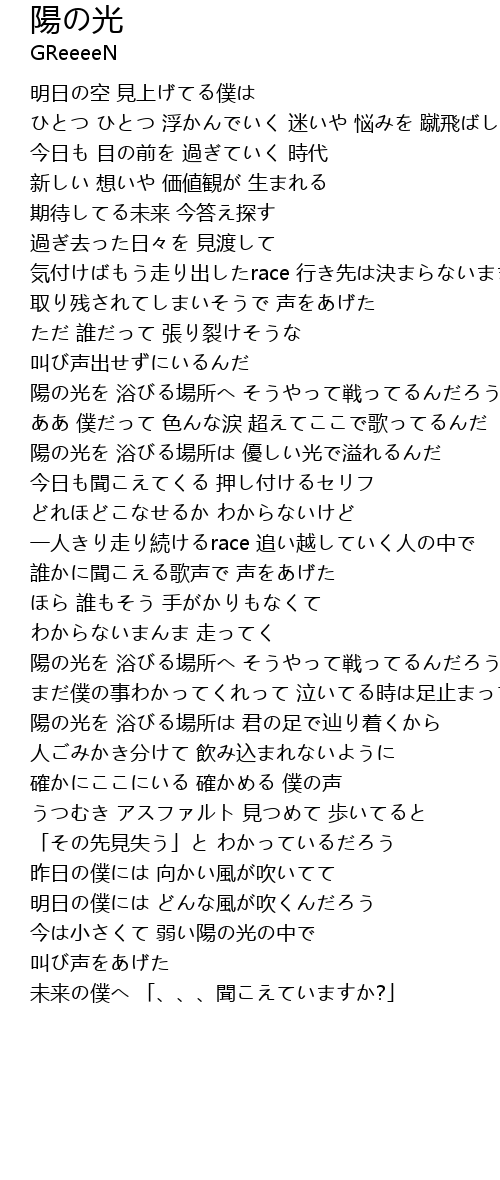 陽の光
GReeeeN
明日の空 見上げてる僕は
ひとつ ひとつ 浮かんでいく 迷いや 悩みを 蹴飛ばし
今日も 目の前を 過ぎていく 時代
新しい 想いや 価値観が 生まれる
期待してる未来 今答え探す
過ぎ去った日々を 見渡して
気付けばもう走り出したrace 行き先は決まらないまま
取り残されてしまいそうで 声をあげた
ただ 誰だって 張り裂けそうな
叫び声出せずにいるんだ
陽の光を 浴びる場所へ そうやって戦ってるんだろう
ああ 僕だって 色んな涙 超えてここで歌ってるんだ
陽の光を 浴びる場所は 優しい光で溢れるんだ
今日も聞こえてくる 押し付けるセリフ
どれほどこなせるか わからないけど
一人きり走り続けるrace 追い越していく人の中で
誰かに聞こえる歌声で 声をあげた
ほら 誰もそう 手がかりもなくて
わからないまんま 走ってく
陽の光を 浴びる場所へ そうやって戦ってるんだろう
まだ僕の事わかってくれって 泣いてる時は足止まって
陽の光を 浴びる場所は 君の足で辿り着くから
人ごみかき分けて 飲み込まれないように
確かにここにいる 確かめる 僕の声
うつむき アスファルト 見つめて 歩いてると
「その先見失う」と わかっているだろう
昨日の僕には 向かい風が吹いてて
明日の僕には どんな風が吹くんだろう
今は小さくて 弱い陽の光の中で
叫び声をあげた
未来の僕へ 「、、、聞こえていますか?」